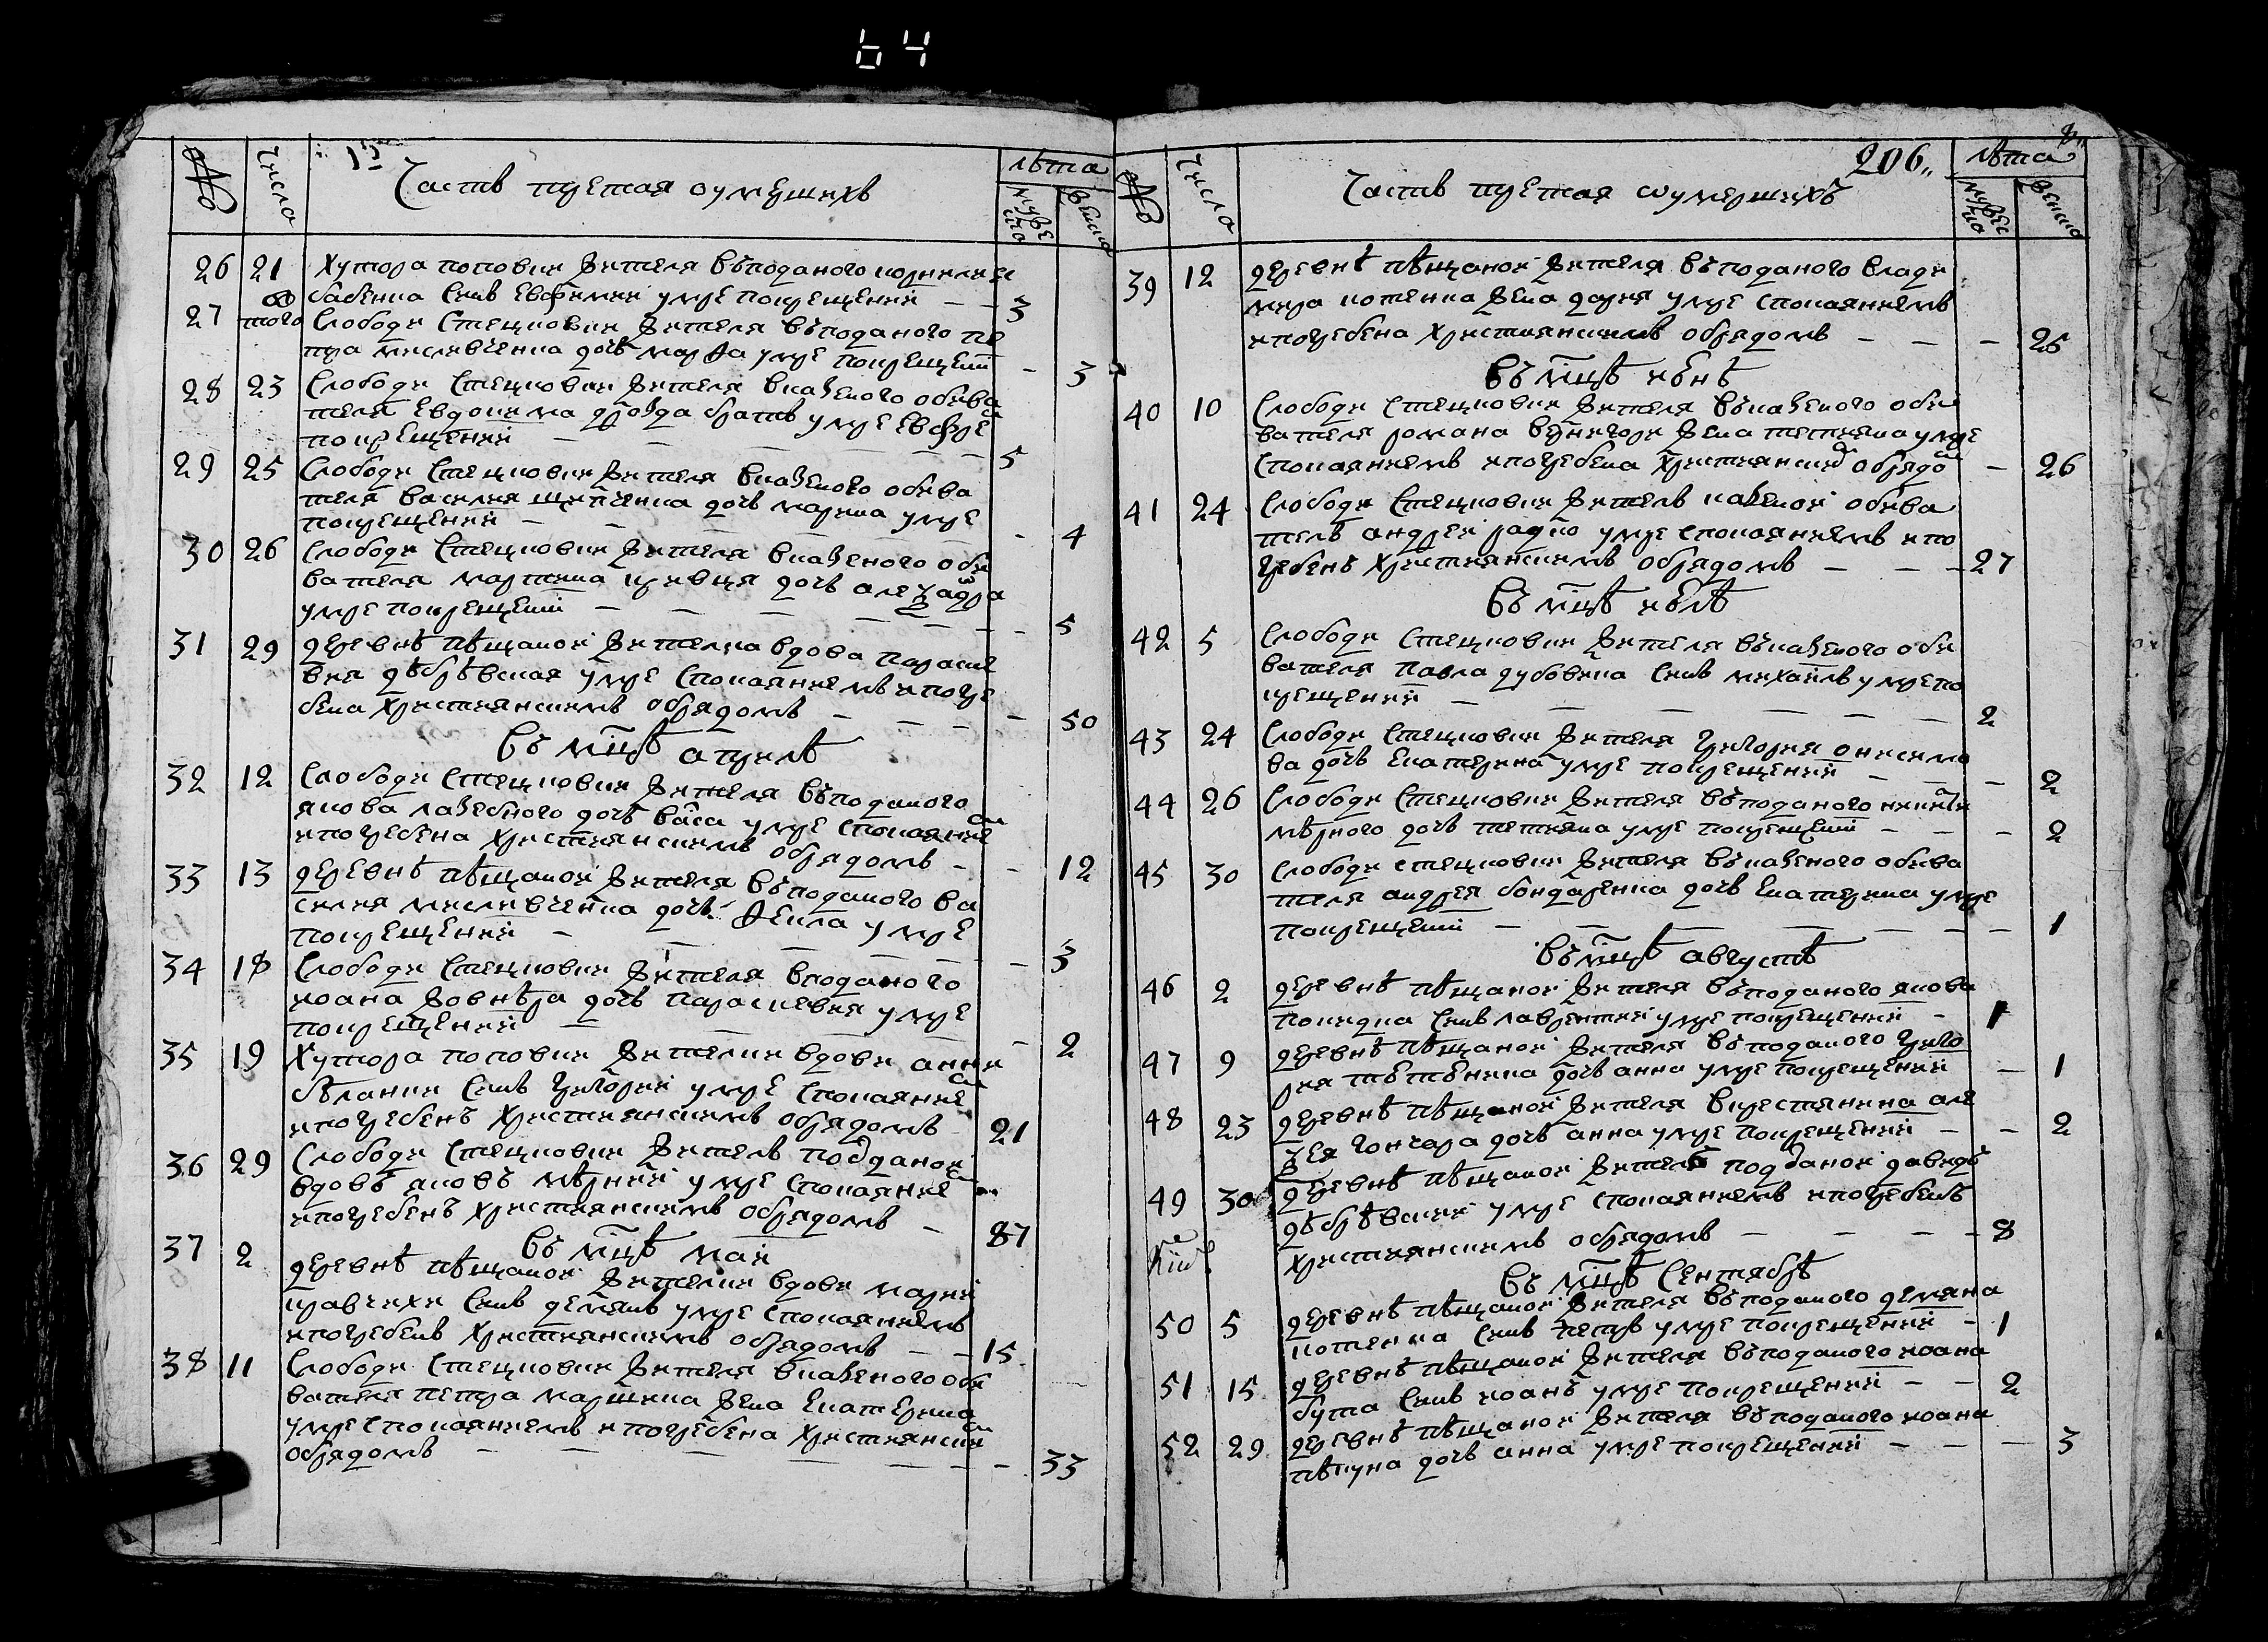 64
№ Число Часть третая о умершихъ лѣта
муже ска женска
26 21 Хутора поповки жителя въ поданого корнилия
бабенка Синъ Евфимий умре покрещений — — 3
27 того Слободи Стецковки жителя въ поданого пе
тра мисливченка дочь марѳа умре покрещении — 3
28 23 Слободи Стецковки жителя вказеного обива
теля Евдокима дрозда братъ умре Евфре
покрещений — — — 5
29 25 Слободи Стецковки жителя вказеного обива
теля василия дочь марина умре
покрещений — — — 4
30 26 Слободи Стецковки жителя вказеного оби
вателя мартина кривця дочь алеѯадра
умре покрещении — — — 5
31 29 деревнѣ пѣщаной жителка вдова параске
вия умре Спокаяниемъ и погре
бена Християнскимъ обрядомъ — — — 50
Въ мцѣ априлѣ
32 12 Слободи Стецковки жителя въ поданого
якова лазебного дочь васа умре Спокаяние
и погребена Християнскимъ обрядомъ — — 12
33 13 деревнѣ пѣщаной жителя въ поданого ва
силия мисливченка дочь ѳекла умре
покрещений — — — 3
34 18 Слободи Стецковки жителя вподаного
иоана жовнѣра дочь параскевия умре
покрещений — — — 2
35 19 Хутора поповки жителки вдови анни
бѣланки Синъ григорий умре Спокаяние
и погребенъ Християнскимъ обрядомъ 21
36 29 Слободи Стецковки житель подданой
вдовъ яковъ мѣрний умре Спокаяние
и погребенъ Християнскимъ обрядомъ — 87
Въ мцѣ маи
37 2 деревнѣ пѣщаной жителки вдови марии
кравчихи Синъ демянъ умре Спокаяниемъ
и погребенъ Християнскимъ обрядомъ — — 15
38 11 Слободи Стецковки жителя вказеного оби
вателя петра маркина жена Екатерина
умре Спокаяниемъ и погребена Християнски
обрядомъ — — — 33
206
№ Число Часть третая о умершихъ лѣта
мужес ка женска
39 12 деревнѣ пѣщаной жителя въ поданого влади
мира котенка жена дария умре Спокаяниемъ
и погребена Християнскимъ обрядомъ — — — 25
Въ мцѣ июнѣ
40 10 Слободи Стецковки жителя въ казеного оби
вателя романа вернигори жена тетияна умре
Спокаяниемъ и погребена Християнски обрядо — 26
41 24 Слободи Стецковки житель казеной обива
тель андрей радко умре Спокаяниемъ и по
гребенъ Християнскимъ обрядомъ — — — 27
Въ мцѣ июлѣ
42 5 Слободи Стецковки жителя въ казеного оби
вателя павла дубовика Синъ михаилъ умре по
крещений — — — 2
43 24 Слободи Стецковки жителя григория онисимо
ва дочь Екатерина умре покрещений — — 2
44 26 Слободи Стецковки жителя въ поданого никити
мѣрного дочь тетияна умре покрещении — — — 2
45 30 Слободи стецковки жителя въ казеного обива
теля андрея бондаренка дочь Екатерина умре
покрещении — — — 1
въ мцѣ августѣ
46 2 деревнѣ пѣщаной жителя въ поданого якова
покидка Синъ лаврентий умре покрещений — 1
47 9 деревнѣ пѣщаной жителя въ поданого григо
рия дочь анна умре покрещений — 1
48 23 деревнѣ пѣщаной жителя вкрестянина але
ѯея гончара дочь анна умре покрещений — — 2
49 30 деревнѣ пѣщаной житель подданой давидъ
умре Спокаяниемъ и погребенъ
Християнскимъ обрядомъ — — — 8
Въ мцѣ Сентябрѣ
50 5 деревнѣ пѣщаной жителя въ поданого демяна
котенка Синъ петръ умре покрещений — 1
51 15 деревнѣ пѣщаной жителя въ поданого иоана
бута Синъ иоанъ умре покрещений — — 2
52 29 деревнѣ пѣщаной жителя въ поданого иоана
пѣкуна дочь анна умре покрещений — — — 3